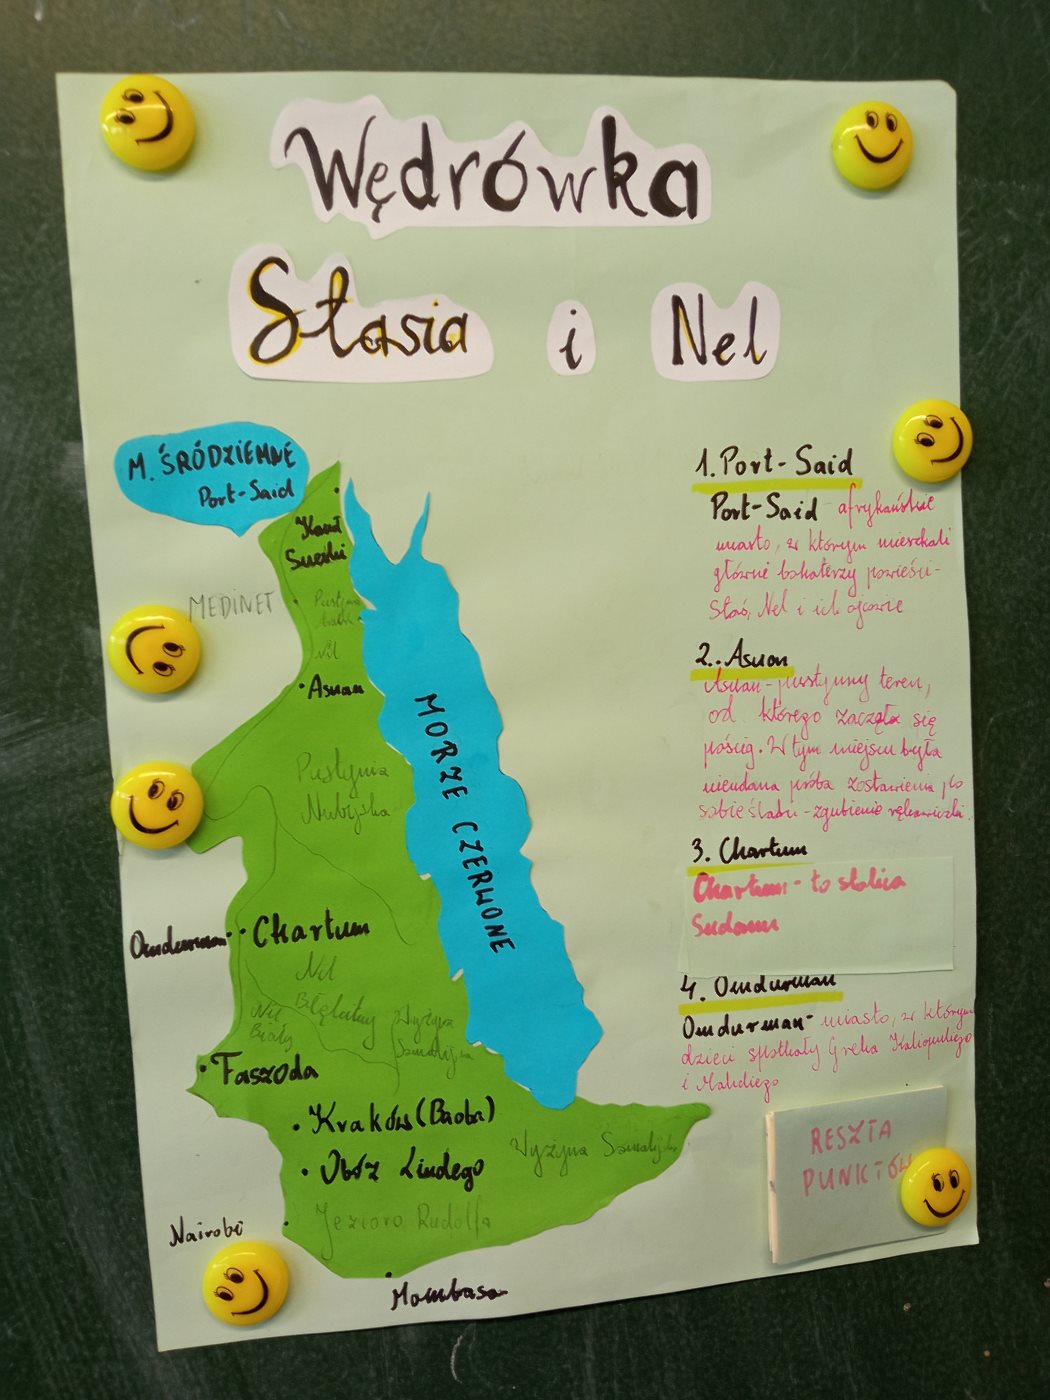 Wędrówka
Stasia i Nel
M. ŚRÓDZIEMNE
Port-Said
Kanał
Sueski
MEDINET
Pustynia
Nil
Asuan
Pustynia
Nubijska
MORZE CZERWONE
Omdurman
Chartum
Nil
Błękitny
Nil
Biały
Wyżyna
Somalijska
Faszoda
Kraków (Baoba)
Obóz Lindego
Wyżyna Somalijska
Jezioro Rudolfa
Nairobi
Mombasa
1. Port-Said
Port-Said - afrykańskie
miasto, w którym mieszkali
główni bohaterzy powieści-
Staś, Nel i ich ojcowie
2. Asuan
Asuan - pustynny teren,
od którego zaczęła się
pościg. W tym miejscu była
nieudana próba zostawienia po
sobie śladu - zgubienie rękawiczki.
3. Chartum
Chartum - to stolica
Sudanu
4. Omdurman
Omdurman - miasto, w którym
dzieci spotkały Greka Kaliopulego
i Mahdiego
RESZTA
PUNKTÓW